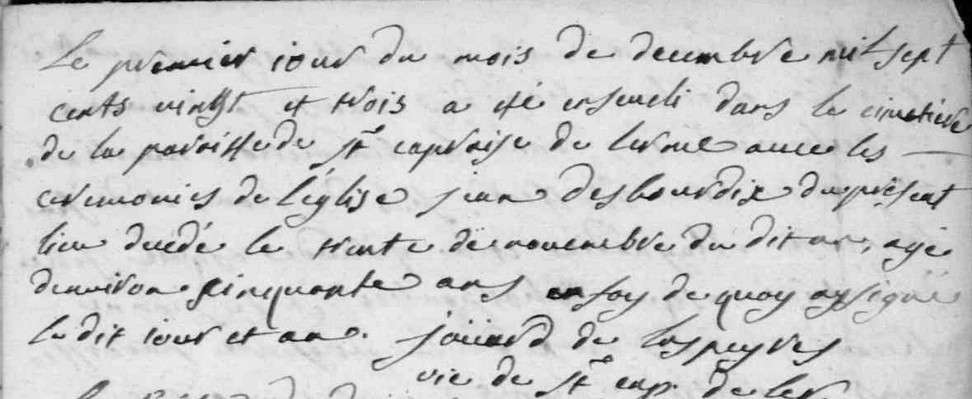 Le premier jour du mois de decembre mil sept
cents vingt et trois a eté enseveli dans le cimetiere
de la paroisse de St capraise de lerme avec les
ceremonies de l'église jean desbourdix du présent
lieu decedé le trente de novembre du dit an, agé
denviron cinquante ans en foy de quoy ay signé
le dit jour et an. de laspeyres
vic de St cap. de ler